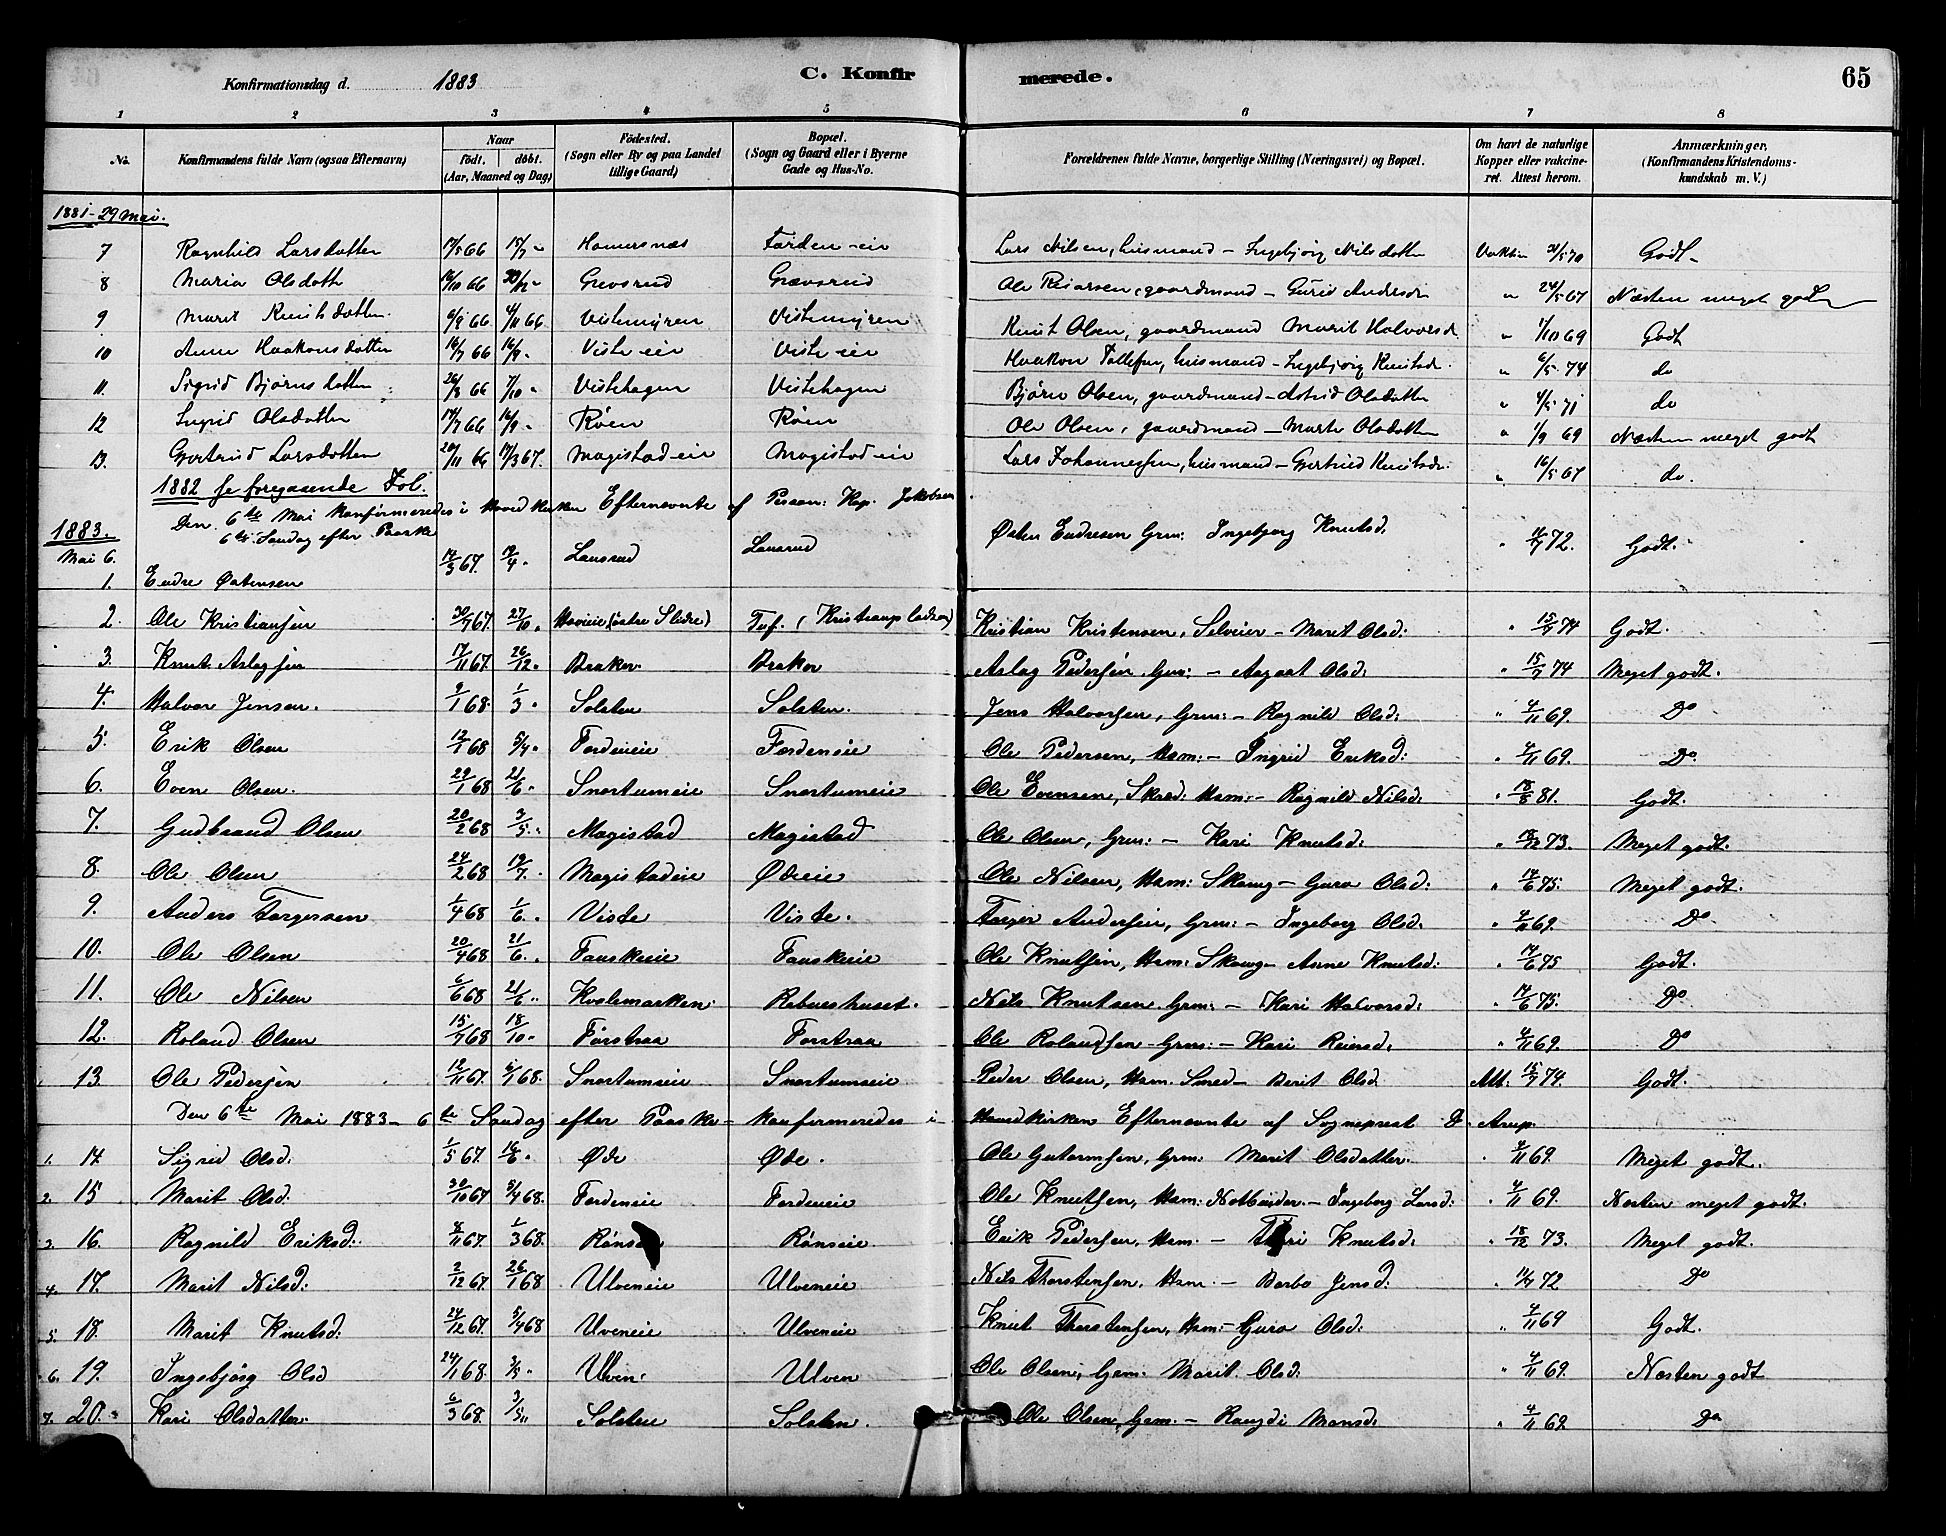 Konfirmationsdag d. 1883 C. Konfirmerede. 65
1 2 3 4 5 6 7 8
No. Konfirmandens fulde Navn (ogsaa Efternavn) Naar født. døbt. (Aar, Maaned og Dag) Fødested. (Sogn eller By og paa Landet tillige Gaard) Bopæl. (Sogn og Gaard eller i Byerne Gade og Hus-No. Forældrenes fulde Navne, borgerlige Stilling (Næringsvei) og Bopæl. Om havt de naturlige Kopper eller vaccineret. Attest herom. Anmærkninger. (Konfirmandens Kristendomskundskab m. V.)
1881 - 29 Mai.
7 Ragnhild Larsdatter 17/5 66 15/7 " Hamersnæs Førden-eie Lars Nilsen, husmand - Ingebjørg Nilsdatter Vaktin 21/5 70 Godt
8 Maria Olsdatte 16/10 66 30/12 " Grevsrud Grævsrud Ole Reiarsen, gaardmand - Gurid Andersdr " 24/5 67 Næsten meget godt
9 Marit Knutsdatter 6/9 66 4/11 66 Vistemyren Vistemyren Knut Olsen, gaardmand Marit Halvorsd. " 1/10 69 Godt
10 Anne Haakonsdatter 16/7 66 16/9 " Viste-eie Viste-eie Haakon Tollefsen, husmand - Ingebjørg Knutsdr. " 6/5 74 do
11. Sigrid Bjørnsdatter 26/8 66 7/10 " Vistehagen Vistehagen Bjørn Olsen, gaardmand - Astrid Olsdatter " 4/5 71 do
12 Ingrid Olsdatter 17/7 66 16/9 " Røen Røen Ole Olsen, gaardmand - Marte Olsdatter " 1/9 69 Næsten meget godt
13. Gertrud Larsdatter 20/11 66 17/3 67. Magistad-eie Magistad-eie Lars Johannessen, husmand - Gertrud Knutsdr. " 16/5 67 do.
1882 se foregaaende Fol.
1883. Den 6te Mai konfirmeredes i Hovedkirken Efternævnte af Person: Kap. Jakobsen
6te Søndag efter Paaske
Mai 6.
1. Endre Østensen 14/3 67. 19/4 " Lansrud Lansrud Østen Endresen Grm: Ingebjørg Knutsd. " 11/7 72. Godt.
2. Ole Kristiansen 30/7 67. 27/10 " Hovieie (østre Slidre) Tuf. (Kristianspladsen) Kristian Kristensen, Selveier - Marit Olsd: " 15/7 74 Godt.
3. Knut Aslagsen 17/11 67. 26/12 " Braker Braker Aslag Pedersen Grm: - Aagaat Olsd: " 15/7 74 Meget godt.
4. Halvor Jensen. 9/1 68. 1/3 " Solsten Solsten. Jens Halvorsen, Grm: - Ragnild Olsd: " 4/11 69. Do
5. Erik Olsen 12/1 68 5/4 " Fordeneie Førdeneie Ole Pedersen, Hsm: - Ingrid Eriksd: " 4/11 69. Do.
6. Even Olsen. 29/1 68 21/6 " Snortumeie Snortumeie Ole Evensen, Skræd: Hsm: - Ragnild Nilsd: " 18/8 81. Godt.
7. Gudbrand Olsen 20/2 68 3/5 " Magistad Magistad Ole Olsen, Grm: - Kari Knutsd: " 18/12 73. Meget godt.
8. Ole Olsen 24/2 68 19/7 . Magistadeie Ødeeie Ole Nilsen, Hsm: Skoug - Guro Olsd: " 14/6 75. Meget godt.
9. Anders Torgersen 1/4 68 1/6 . Viste Viste. Torger Andersen, Grm: - Ingeborg Olsd. " 4/11 69. Do
10. Ole Olsen 20/4 68 21/6 . Fauskeeie Fauskeeie Ole Knutsen, Hsm: Skoug - Anne Knutsd: " 14/6 75 Godt.
11. Ole Nilsen 6/6 68 21/6 " Kvolemarken. Rabneshuset. Nils Knutsen Grm: - Kari Halvorsd: " 14/6 75. Do
12. Roland Olsen 15/7 68 18/10 " Førstraa Forstraa Ole Rolandsen - Grm: - Kari Reiersd: " 4/11 69. Do
13. Ole Pedersen 12/11 67. 6/1 68. Snortumeie Snortumseie Peder Olsen, Hsm. Smed - Berit Olsd Att: 15/7 74. Godt.
Den 6te Mai 1883 - 6te Søndag efter Paaske - konfirmeredes i Hovedkirken Efternævnte af Sogneprest D. Arup.
1. 14. Sigrid Olsd: 1/5 67. 16/6 " Øde Øde. Ole Gutormsen, Grm: Marit Olsdatter. " 4/11 69 Meget godt.
2. 15. Marit Olsd: 30/10 67 5/4 68. Fordeneie Fordeneie Ole Knutsen, Hsm: Notbinder - Ingeborg Larsd: " 4/11 69. Næsten meget godt.
3. 16. Ragnild Eriksd: 8/11 67. 1/3 68. Rønseie Rønseie. Erik Pedersen, Hsm: - Kari Knutsd: " 18/12 73. Meget godt.
4. 17. Marit Nilsd: 2/12 67 26/1 68 Ulveneie Ulveneie Nils Thorstensen. Hsm: - Barbo Jensd: " 11/7 72 Do
5. 18. Marit Knutsd: 24/12 67. 5/4 68 Uveneie Ulveneie Knut Thorstensen, Hsm: - Guro Olsd: " 4/11 69 Godt.
6. 19. Ingebjørg Olsd 24/1 68. 3/5 " Ulven. Ulven Ole Olsen, Grm: Marit Olsd: " 4/11 69. Næsten godt
7. 20. Kari Olsdatter. 6/3 68. 3/5 " Solsten Solsten. Ole Olsen, Grm: - Rangdi Monsd: " 4/11 69. Do